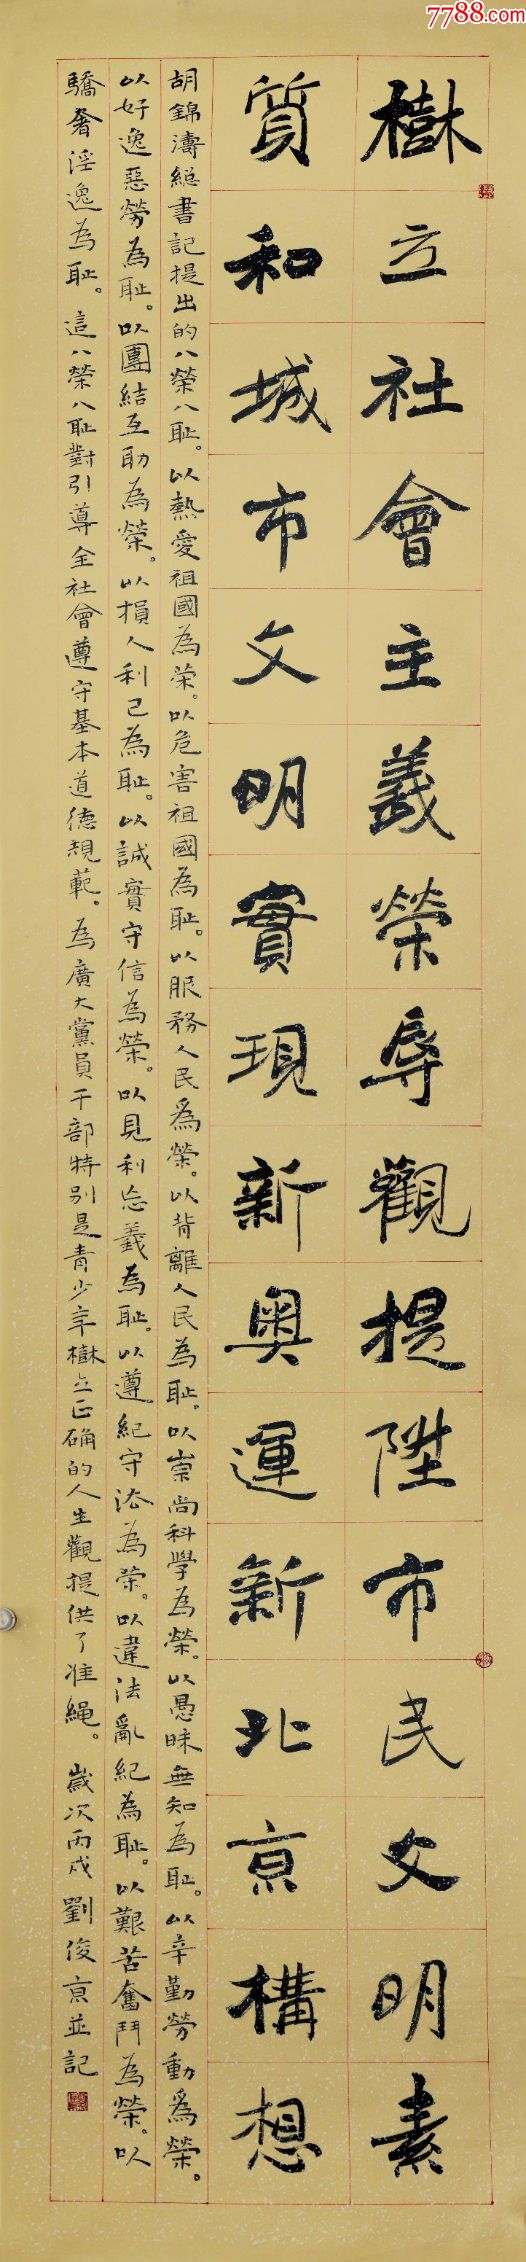 7788.com
樹立社會主義榮辱觀提陞市民文明素
質和城市文明實現新奧運新北京構想
胡錦濤總書記提出的八榮八耻。以熱愛祖國為荣。以危害祖國為耻。以服務人民為榮。以背離人民為耻。以崇尚科學為榮。以愚昧無知為耻。以辛勤勞動為榮。
以好逸惡勞為耻。以團結互助為榮。以損人利己為耻。以誠實守信為榮。以見利忘義為耻。以遵紀守法為榮。以違法亂紀為耻。以艱苦奮鬥為榮。以
驕奢淫逸為耻。這八榮八耻對引導全社會遵守基本道德規範。為廣大黨員干部特别是青少年樹立正确的人生觀提供了准繩。歲次丙戌劉俊京並記